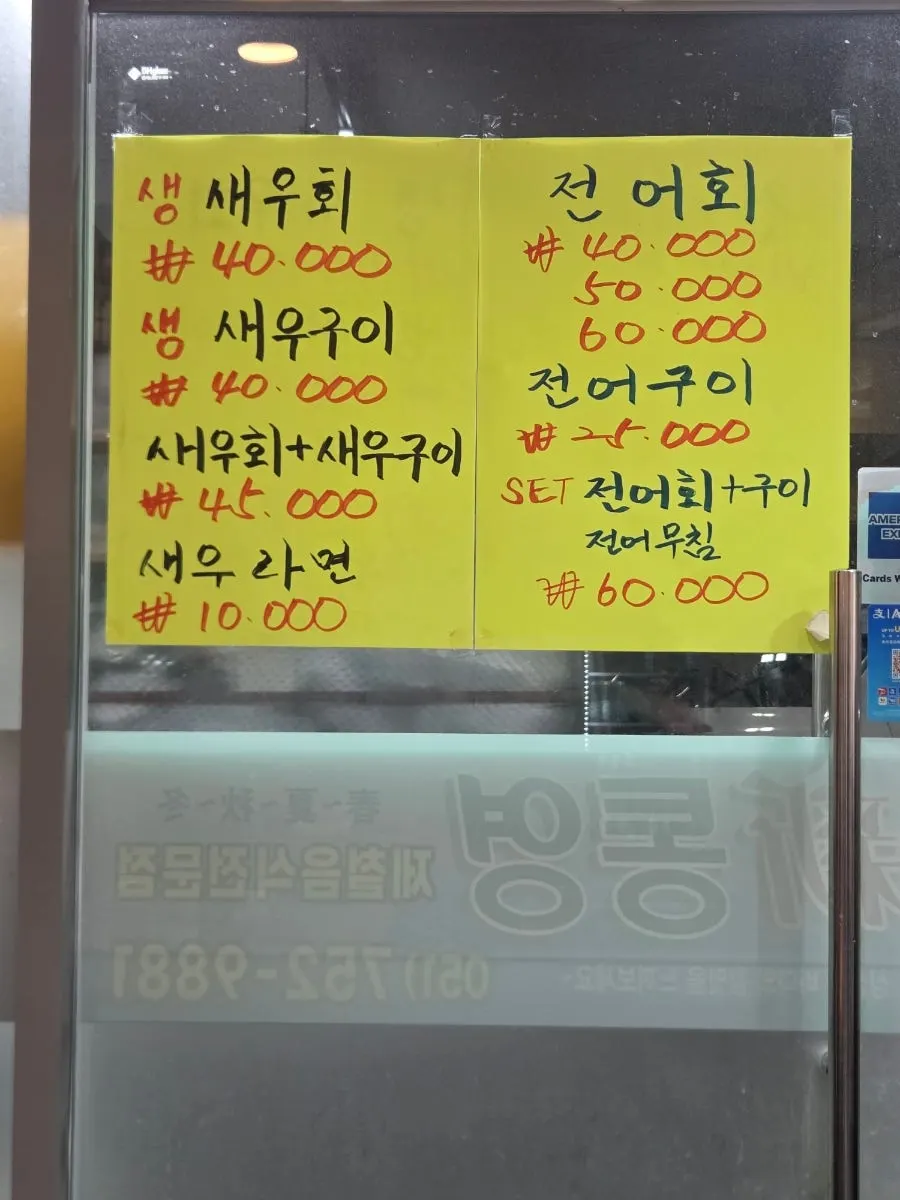 생 새우회
₩ 40.000
생 새우구이
₩ 40.000
새우회+새우구이
₩ 45.000
새우 라면
₩ 10.000
전어회
₩ 40.000
50.000
60.000
전어구이
₩ 25.000
SET 전어회+구이
전어무침
₩ 60.000
Cards W
春~夏~秋~冬
제철음식전문점
통영
051) 752-9881